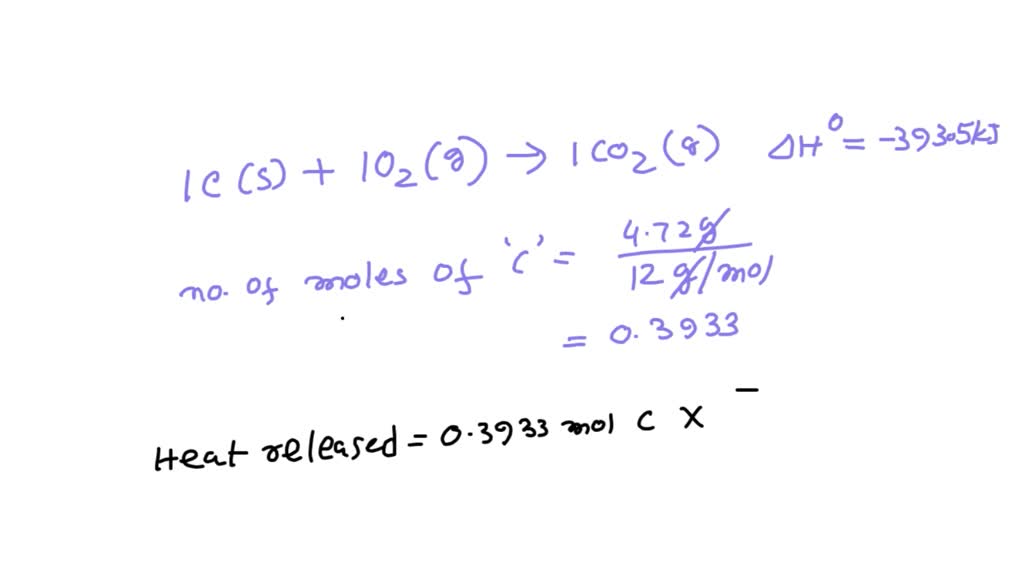 1C(s) + 1O₂(g) → 1CO₂(g) ΔH⁰ = -393.5kJ
no. of moles of 'c' = 4.72g / 12 g/mol
= 0.3933
Heat released = 0.3933 mol C X –